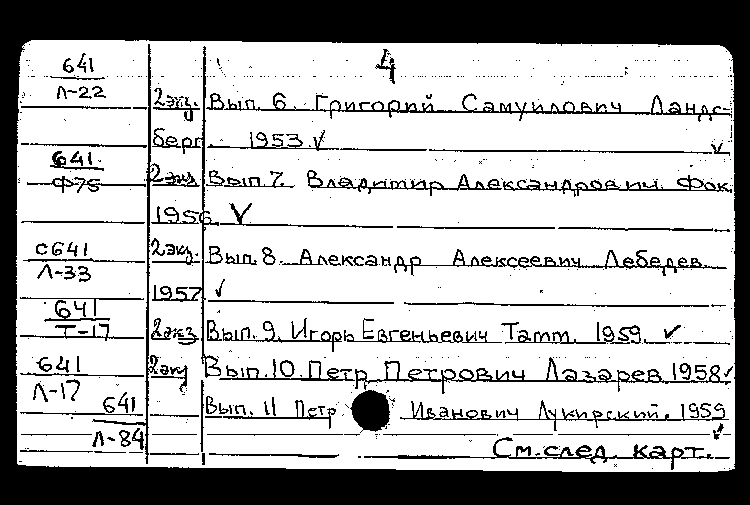 4
641
Л-22
2 экз. Вып. 6. Григорий Самуилович Ландс-
берг. 1953. ✓ ✓
641
Ф75
2 экз Вып. 7. Владимир Александрович Фок.
1956 ✓
С641
Л-33
2 экз. Вып. 8. Александр Алексеевич Лебедев.
1957 ✓
641
Т-17
2 экз Вып. 9. Игорь Евгеньевич Тамм. 1959. ✓
641
Л-17
2 экз Вып. 10. Петр Петрович Лазарев. 1958. ✓
641
Л-84
Вып. 11 Петр Иванович Лукирский. 1959
✓
См. след. карт.